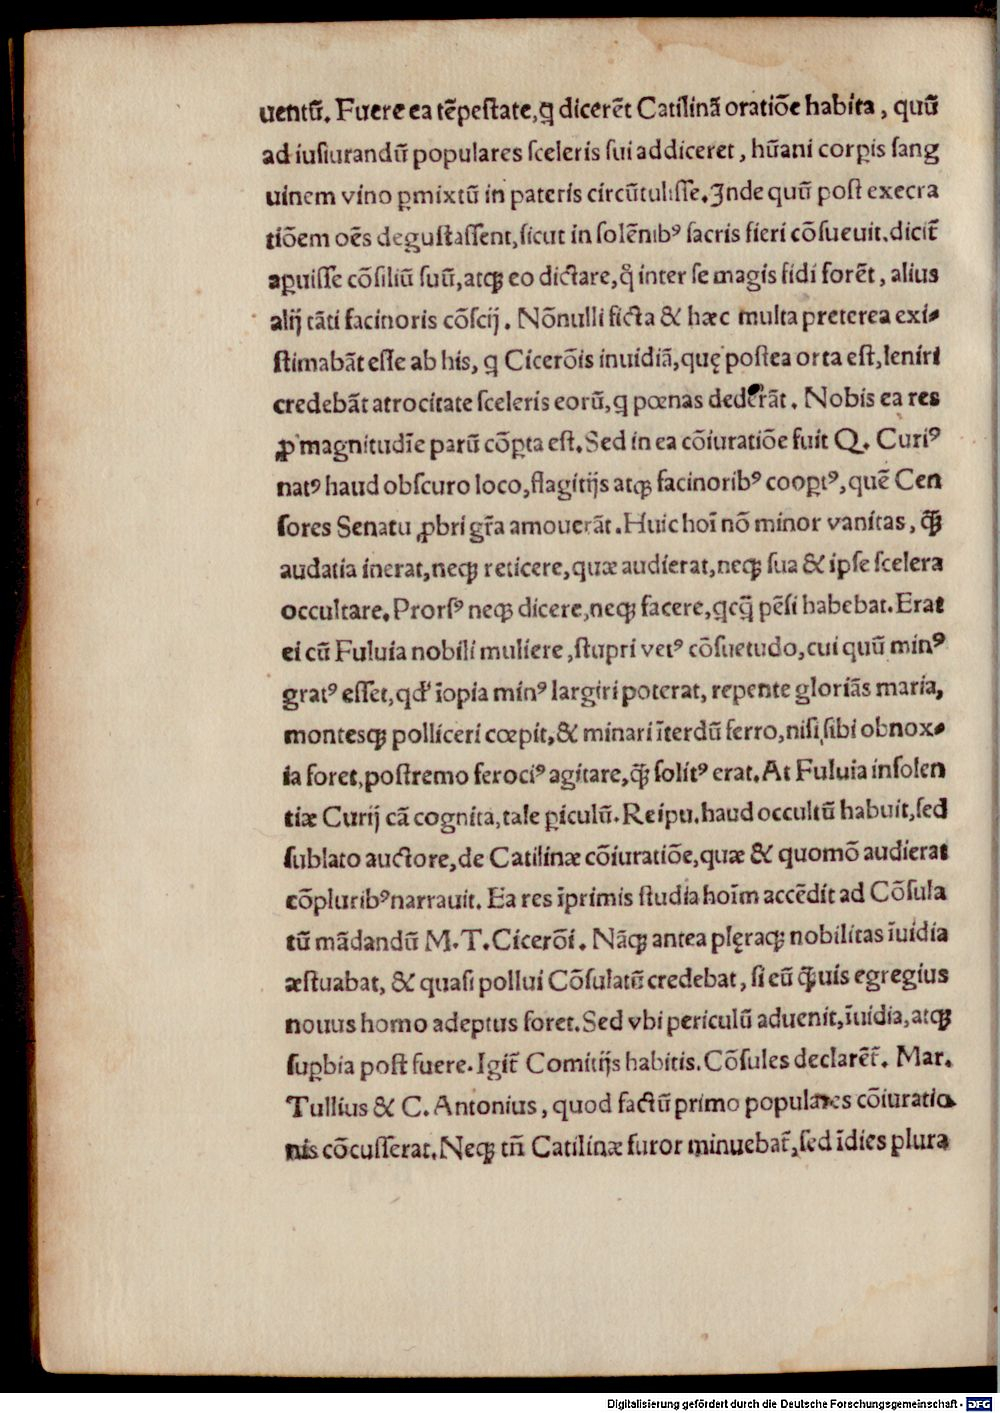 uentū. Fuere ea tēpestate, ꝗ dicerēt Catilinā oratiōe habita, quū
ad iusiurandū populares sceleris sui addiceret, hūani corꝑis sang
uinem vino ꝑmixtū in pateris circūtulisse. Inde quū post execra
tiōem oēs degustassent, sicut in solēnibꝰ sacris fieri cōsueuit. dicit̄
aꝑuisse cōsiliū suū, atqꝫ eo dictare, ꝙ inter se magis fidi forēt, alius
alij tāti facinoris cōscij. Nōnulli ficta & hæc multa preterea exi⸗
stimabāt esse ab his, ꝗ Cicerōis inuidiā, quę postea orta est, leniri
credebāt atrocitate sceleris eorū, ꝗ pœnas dederāt. Nobis ea res
ꝓ magnitudīe parū cōꝑta est. Sed in ea cōiuratiōe fuit Q. Curiꝰ
natꝰ haud obscuro loco, flagitijs atqꝫ facinoribꝰ cooꝑtꝰ, quē Cen
sores Senatu ꝓbri gr̄a amouerāt. Huic hoī nō minor vanitas, ꝗ̄
audatia inerat, neqꝫ reticere, quæ audierat, neqꝫ sua & ipse scelera
occultare. Prorsꝰ neqꝫ dicere, neqꝫ facere, ꝗcꝗ̄ pēsi habebat. Erat
ei cū Fuluia nobili muliere, stupri vetꝰ cōsuetudo, cui quū minꝰ
gratꝰ esset, qđ īopia minꝰ largiri poterat, repente gloriās maria,
montesqꝫ polliceri cœpit, & minari īterdū ferro, nisi sibi obnox⸗
ia foret, postremo ferociꝰ agitare, ꝗ̄ solitꝰ erat. At Fuluia insolen
tiæ Curij cā cognita, tale ꝑiculū. Reipu. haud occultū habuit, sed
sublato auctore, de Catilinæ cōiuratiōe, quæ & quomō audierat
cōpluribꝰ narrauit. Ea res īprimis studia hoīm accēdit ad Cōsula
tū mādandū M. T. Cicerōi. Nāqꝫ antea plęraqꝫ nobilitas īuidia
æstuabat, & quasi pollui Cōsulatū credebat, si eū ꝗ̄uis egregius
nouus homo adeptus foret. Sed vbi periculū aduenit, īuidia, atqꝫ
suꝑbia post fuere. Igit̄ Comitijs habitis. Cōsules declarēt̄. Mar.
Tullius & C. Antonius, quod factū primo populares cōiuratio
nis cōcusserat. Neqꝫ tn̄ Catilinæ furor minuebat̄, sed īdies plura
Digitalisierung gefördert durch die Deutsche Forschungsgemeinschaft - DFG